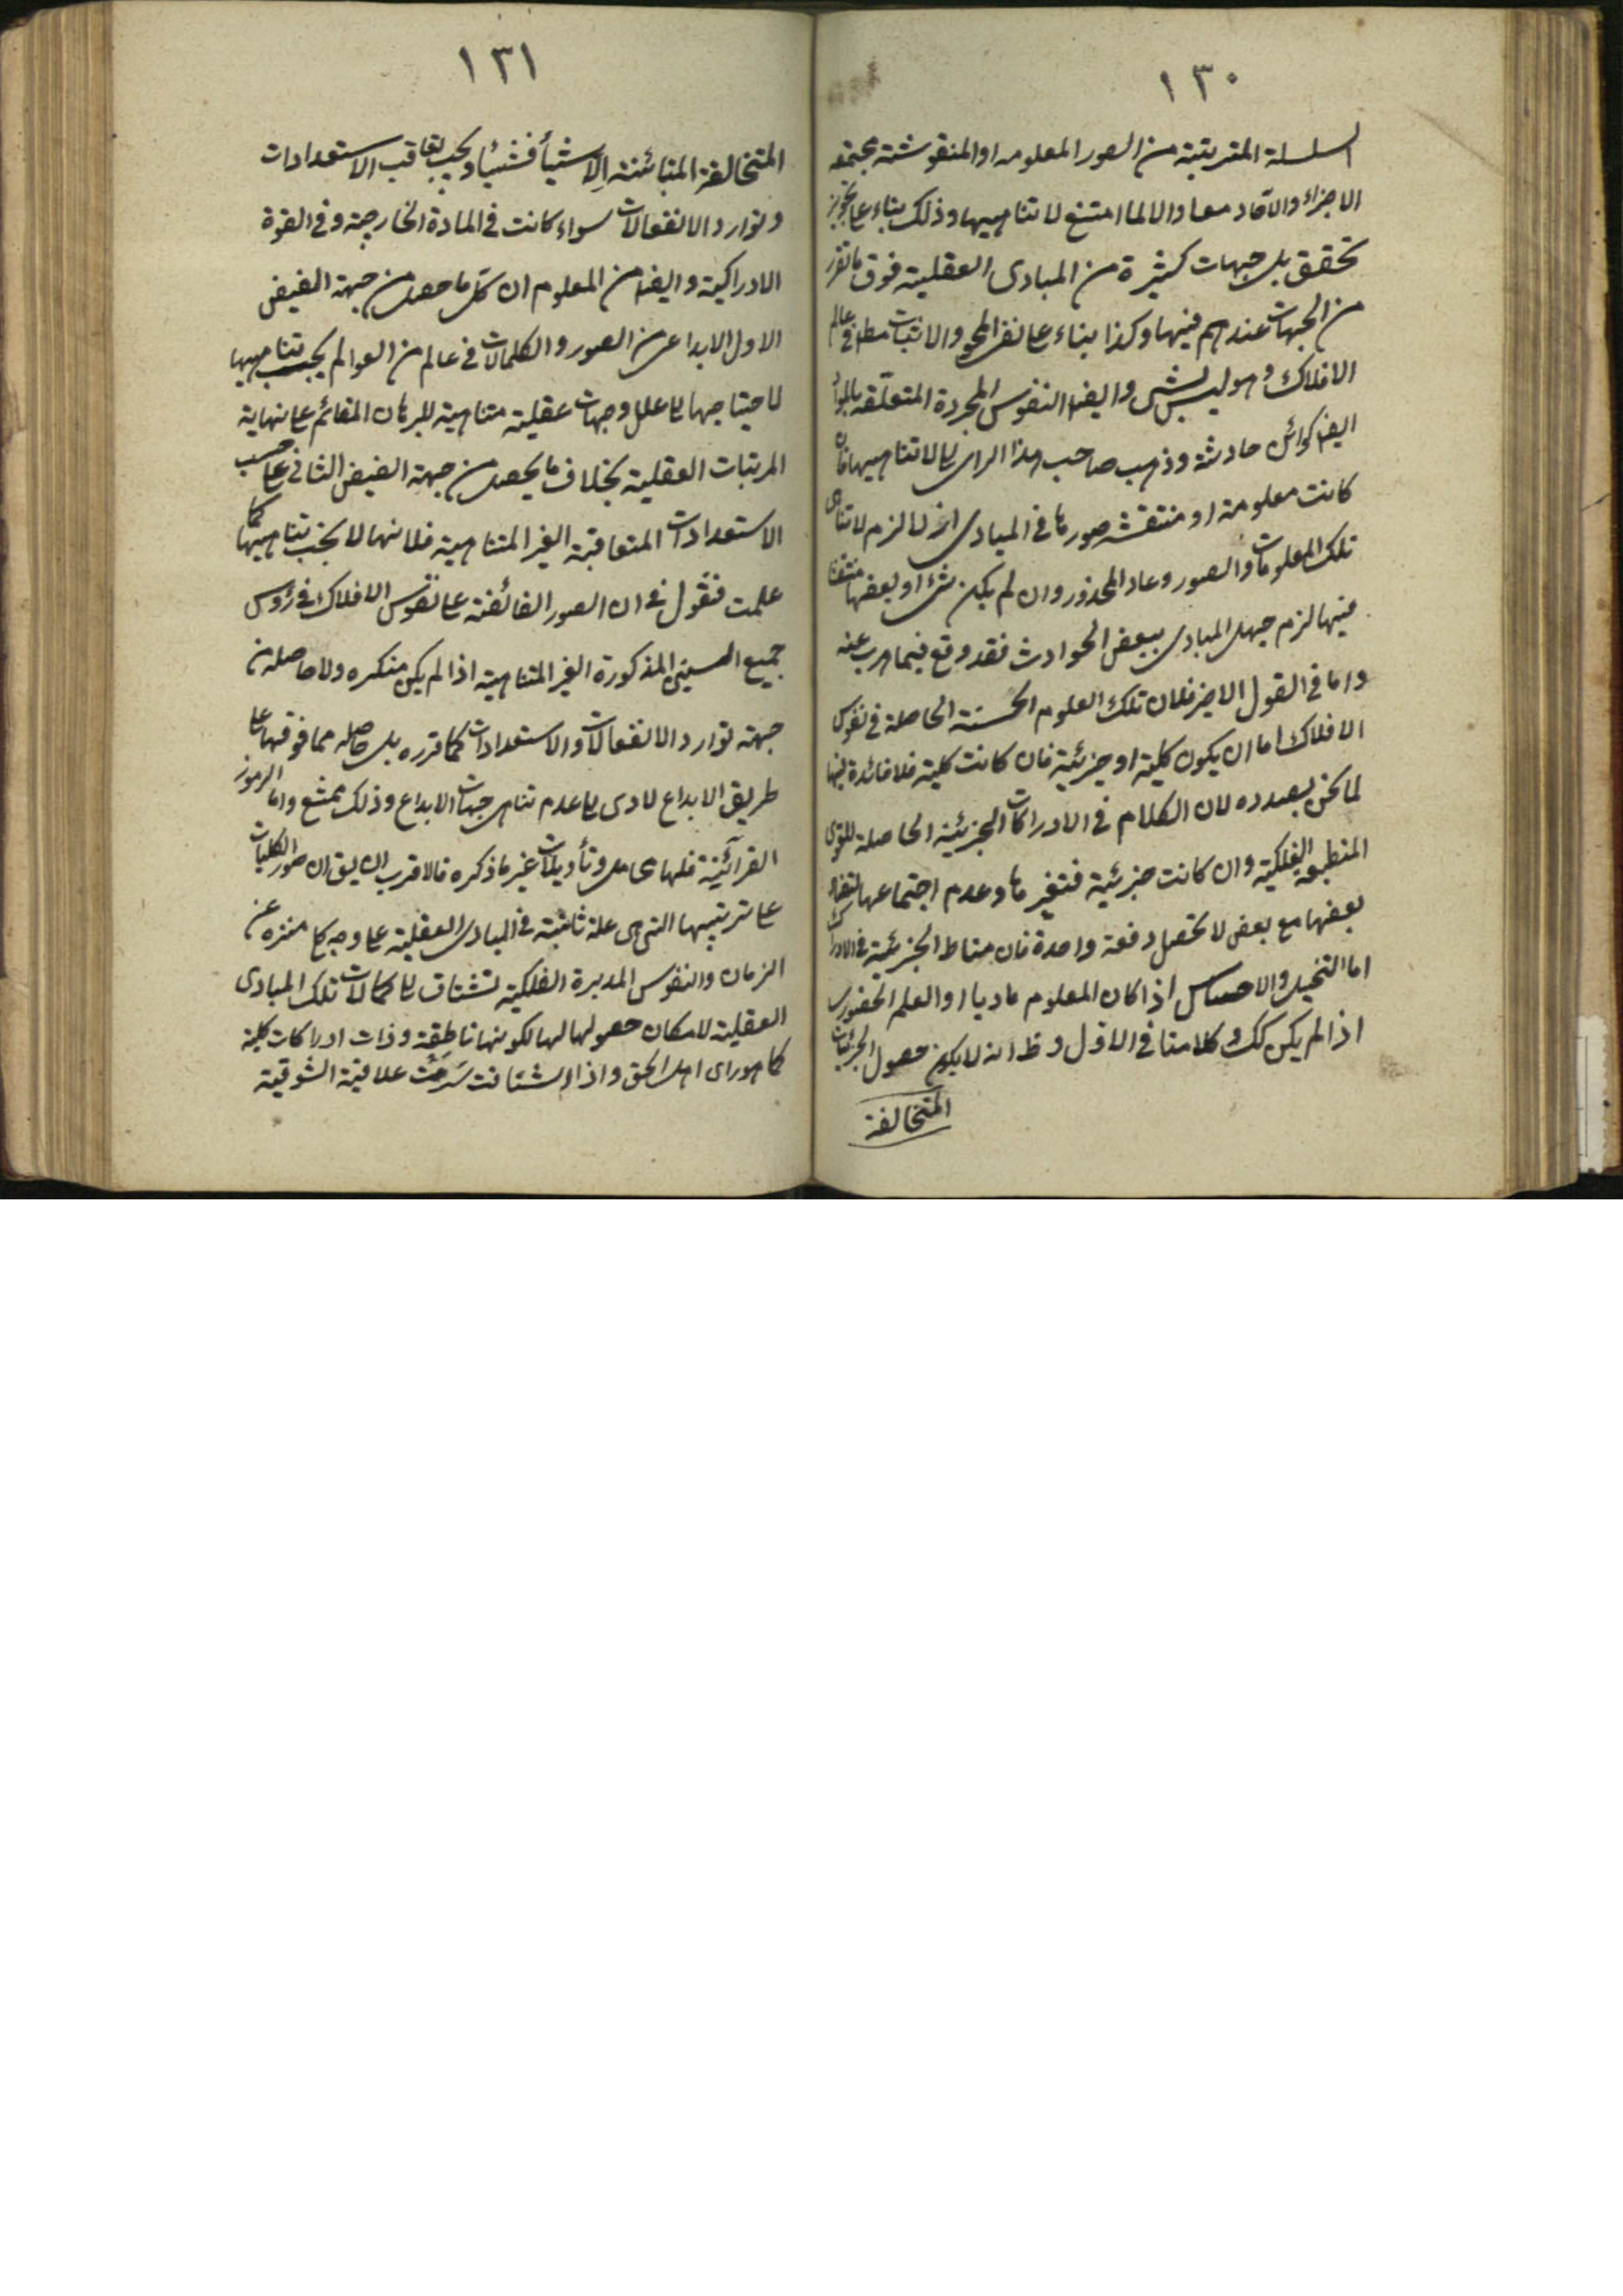 ١٣٠
السلسلة المترتبة من الصور المعلومه او المنقوشة مجتمعة
الاجزاء والآحاد معا والا لما امتنع لا تناهيها وذلك بناء على تجويز
تحقق بل جهات كثيرة من المبادى العقلية فوق ما تقرر
من الجهات عندهم فيها وكذا بناء على نفى المحو والاثبات مطلقا فى عالم
الافلاك وهو ليس بشى وايضا النفوس المجردة المتعلقة بالمواد
ايضا كوائن حادثة وذهب صاحب هذا الراى الى لا تناهيها فان
كانت معلومة او منتقشة صورها فى المبادى لزم لا تناهى
تلك المعلومات والصور وعاد المحذور وان لم يكن شئ او بعضها منتقشا
فيها لزم جهل المبادى ببعض الحوادث فقد وقع فيما هرب عنه
واما فى القول الاخير فلان تلك العلوم الحاصلة فى نفوس
الافلاك اما ان يكون كلية او جزئية فان كانت كلية فلا فائدة فيها
لما نحن بصدده لان الكلام فى الادراكات الجزئية الحاصلة للقوى
المنطبعة الفلكية وان كانت جزئية فتغيرها وعدم اجتماعها لتضاد
بعضها مع بعض لا تحصل دفعة واحدة فان مناط الجزئية فى الادراك
اما التخيل والاحساس اذا كان المعلوم ماديا او العلم الحضورى
اذا لم يكن كك وكلامنا فى الاول وظ انه لا يكون حصول الجزئيات
المتخالفة
١٣١
المتخالفة المتبائنة الا شيأ فشيئا وبحسب تعاقب الاستعدادات
وتوارد الانفعالات سواء كانت فى المادة الخارجية وفى القوة
الادراكية وايضا من المعلوم ان كل ما حصل من جهة الفيض
الاول الابداعى من الصور والكمالات فى عالم من العوالم يجب تناهيها
لاحتياجها الى علل وجهات عقلية متناهية للبرهان القائم على نهاية
المرتبات العقلية بخلاف ما يحصل من جهة الفيض الثانى على حسب
الاستعدادات المتعاقبة الغير المتناهية فلانها لا يجب تناهيها كما
علمت فنقول فى ان الصور الفائضة على نفوس الافلاك فى رؤس
جميع السنين المذكورة الغير المتناهية اذا لم يكن متكرره ولا حاصلة من
جهة توارد الانفعالات والاستعدادات كما قرره بل حاصله مما فوقها على
طريق الابداع لادى الى عدم تناهى جهات الابداع وذلك ممتنع واما الرموز
القرآئية فلها محامل وتأويلات غير ما ذكره فالاقرب ان يق ان صور الكليات
على ترتيبها التى هى علة ثابتة فى المبادى العقلية على وجه كلى منزه عن
الزمان والنفوس المدبرة الفلكية تشتاق الى كمالات تلك المبادى
العقلية لامكان حصولها لها لكونها ناطقة وذات ادراكات كلية
كما هو راى اهل الحق واذا اشتاقت سرت علاقية الشوقية